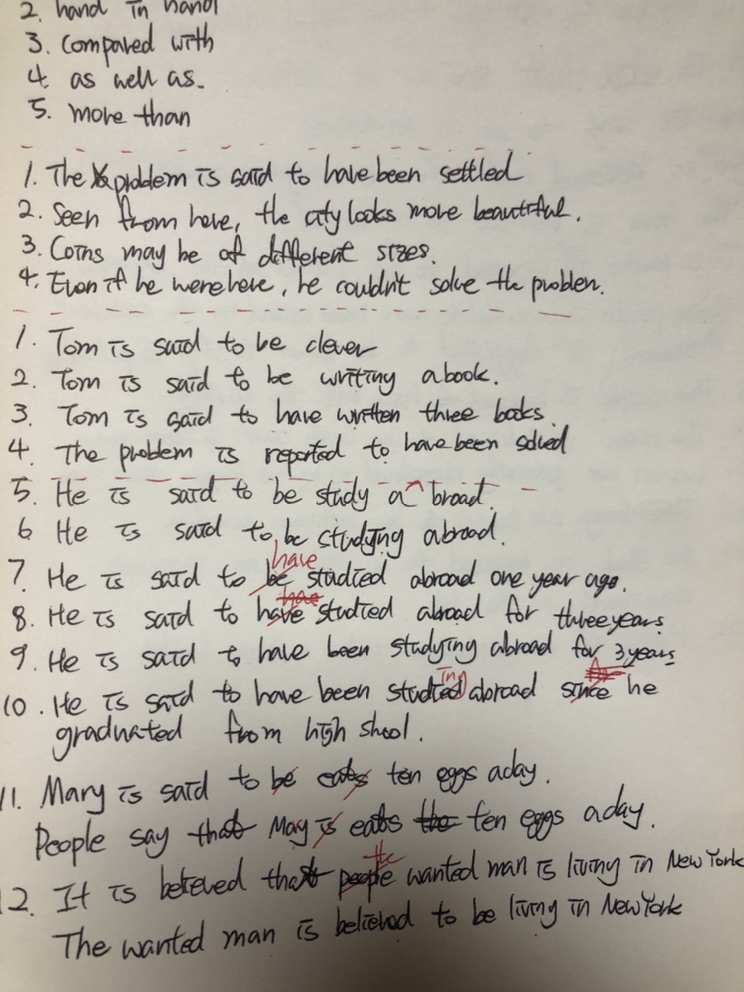 2. hand in hand
3. compared with
4. as well as.
5. more than
1. The problem is said to have been settled
2. Seen from here, the city looks more beautiful.
3. Coins may be of different sizes.
4. Even if he were here, he couldn't solve the problem.
1. Tom is said to be clever
2. Tom is said to be writing a book.
3. Tom is said to have written three books.
4. The problem is reported to have been solved
5. He is said to be study a broad.
6 He is said to be studying abroad.
have
7. He is said to be studied abroad one year ago.
8. He is said to have studied abroad for three years
9. He is said to have been studying abroad for 3 years
ing
10. He is said to have been studied abroad since he
graduated from high shool.
11. Mary is said to be eats ten eggs a day.
People say that Mary is eats the ten eggs a day.
the
12. It is believed that people wanted man is living in New York
The wanted man is believed to be living in New York